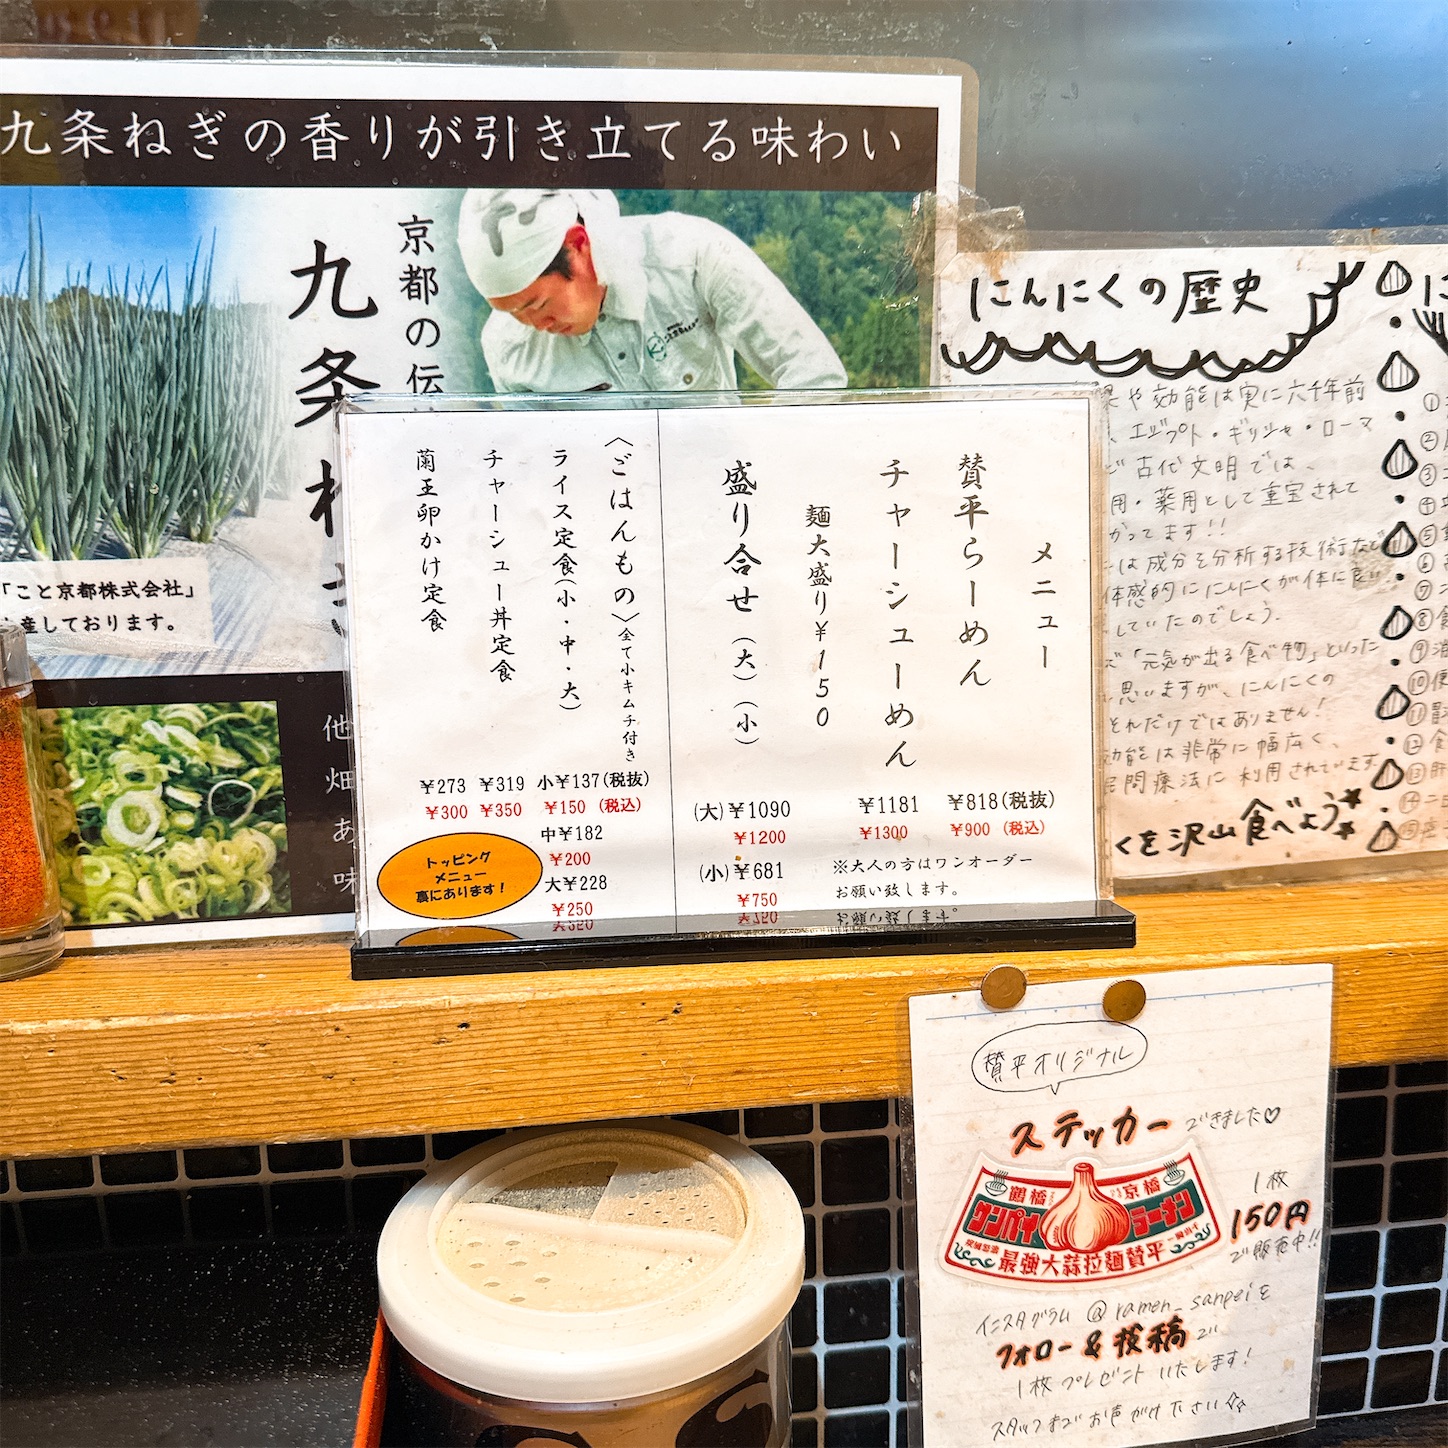 九条ねぎの香りが引き立てる味わい
京都の伝
九条
「こと京都株式会社」
産しております。
他
畑
あ
味
メニュー
賛平らーめん
¥818(税抜)
¥900 (税込)
チャーシューめん
¥1181
¥1300
麺大盛り¥150
盛り合せ (大) (小)
(大)¥1090
¥1200
(小)¥681
¥750
※大人の方はワンオーダー
お願い致します。
〈ごはんもの〉全て小キムチ付き
ライス定食(小・中・大)
小¥137(税抜)
¥150 (税込)
中¥182
¥200
大¥228
¥250
チャーシュー丼定食
¥319
¥350
蘭王卵かけ定食
¥273
¥300
トッピング
メニュー
裏にあります!
にんにくの歴史
や効能は実に六千年前
エジプト・ギリシャ・ローマ
古代文明では、
用・薬用として重宝されて
かってます!!
は成分を分析する技術など
体感的ににんにくが体に良い
していたのでしょう。
「元気が出る食べ物」といった
思いますが、にんにくの
それだけではありません!
効能は非常に幅広く、
民間療法に利用されています。
くを沢山食べよう
①
②
③
④
⑤
⑥
⑦
⑧
⑨
⑩
⑪
⑫
⑬
⑭
⑮
賛平オリジナル
ステッカーできました♡
鶴橋 京橋
サンパイ ラーメン
最強大蒜拉麺賛平
1枚
150円
で販売中!!
インスタグラム @ramen_sanpeiを
フォロー&投稿で
1枚プレゼントいたします!
スタッフまでお声がけ下さい☆